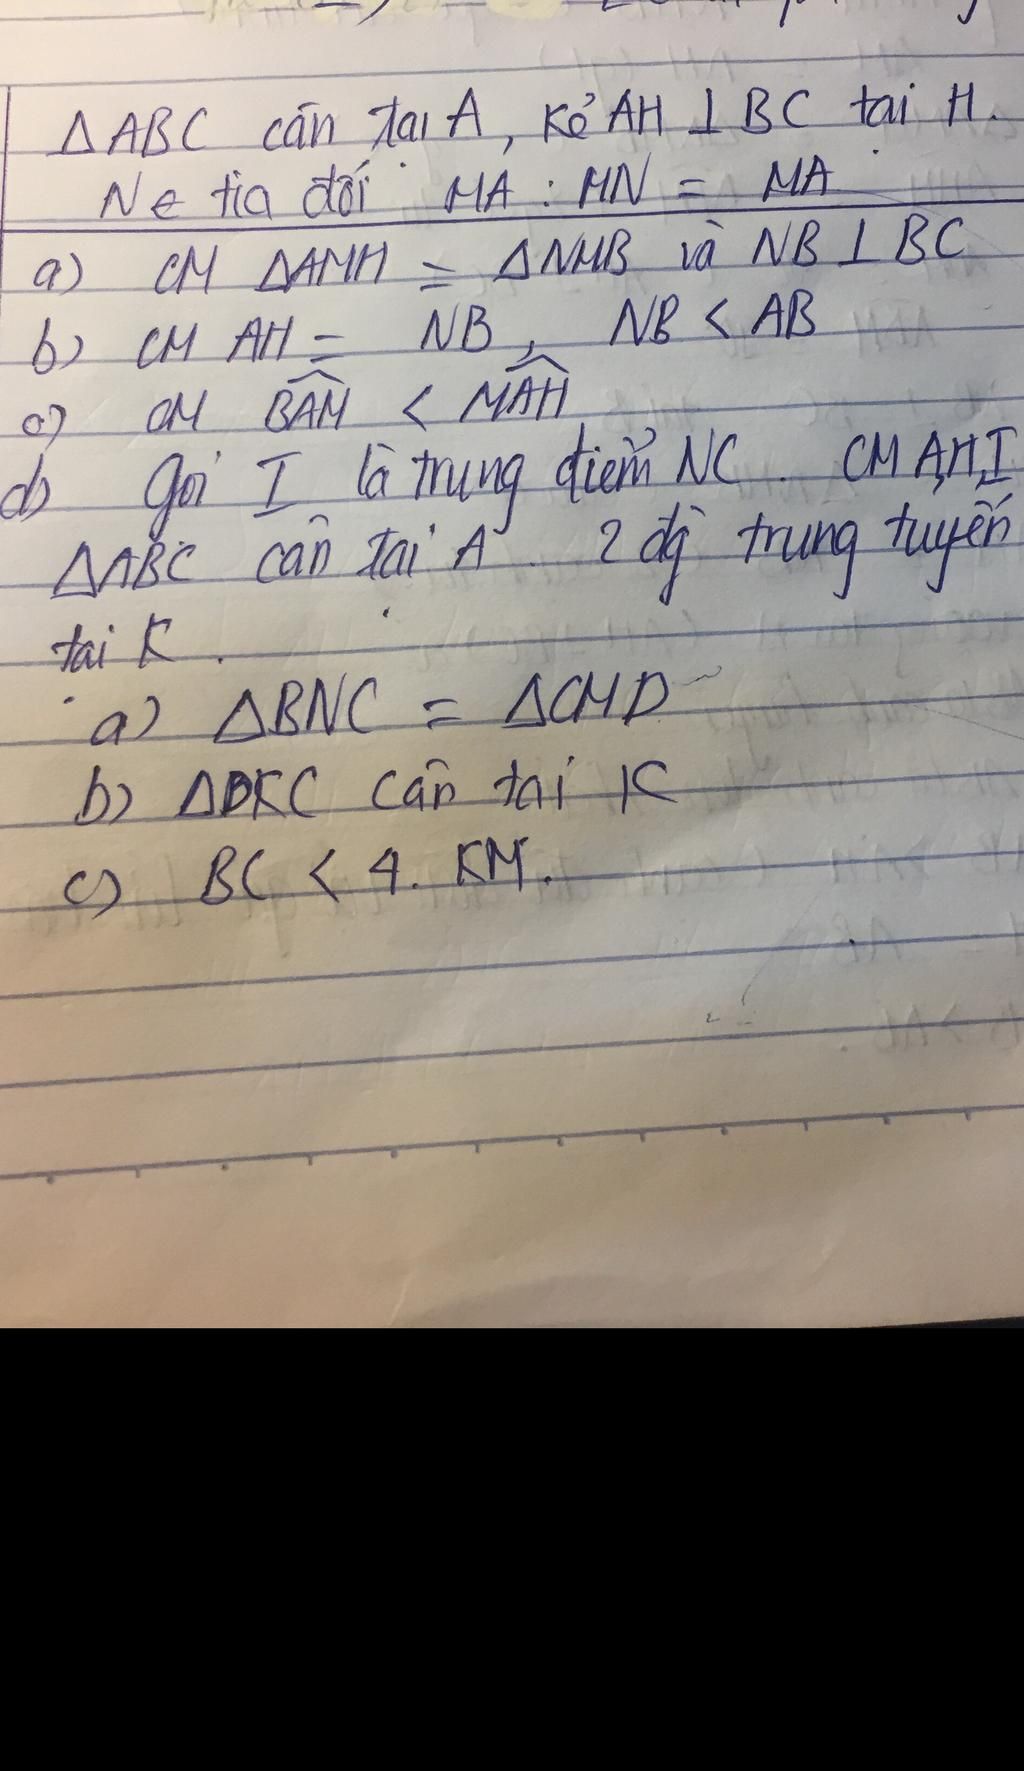 ΔABC cân tại A, Kẻ AH ⊥ BC tại H.
N ∈ tia đối MA : MN = MA
a) CM ΔAMH = ΔNMB và NB ⊥ BC
b) CM AH = NB, NB < AB
c) CM \widehat{BAM} < \widehat{MAH}
d) Gọi I là trung điểm NC. CM A,H,I
ΔABC cân tại A. 2 đg trung tuyến
tại K.
a) ΔBNC = ΔCMD
b) ΔDKC cân tại K
c) BC < 4. KM.